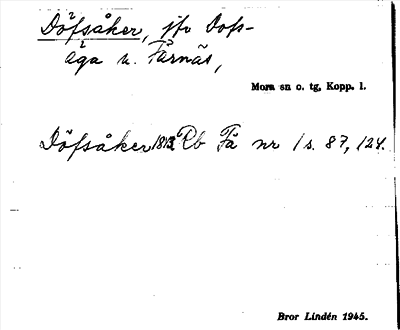 Döfsåker, jfr Dofs-
åga u. Färnäs,
Mora sn o. tg, Kopp. l.
Döfsåker 1813 Rb Få nr 1 s. 87, 124.
Bror Lindén 1945.